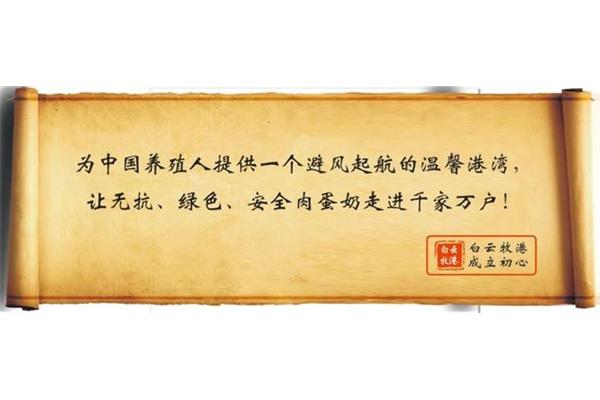 为中国养殖人提供一个避风起航的温馨港湾，
让无抗、绿色、安全肉蛋奶走进千家万户！
白云牧港
白云牧港
成立初心